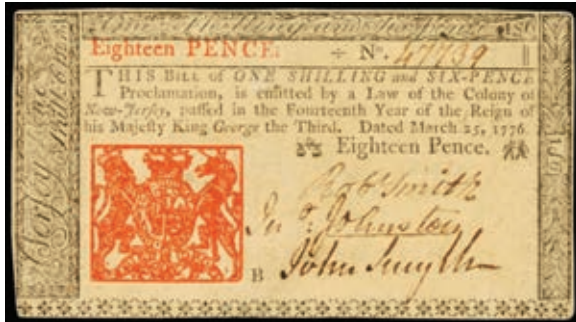 One Shilling and
Eighteen PENCE. ÷ No. 47739
THIS Bill of ONE SHILLING and SIX-PENCE
Proclamation, is emitted by a Law of the Colony of
New-Jersey, passed in the Fourteenth Year of the Reign of
his Majesty King George the Third. Dated March 25, 1776.
Eighteen Pence.
Robt Smith
Jno. Johnston
B John Smyth
Jersey